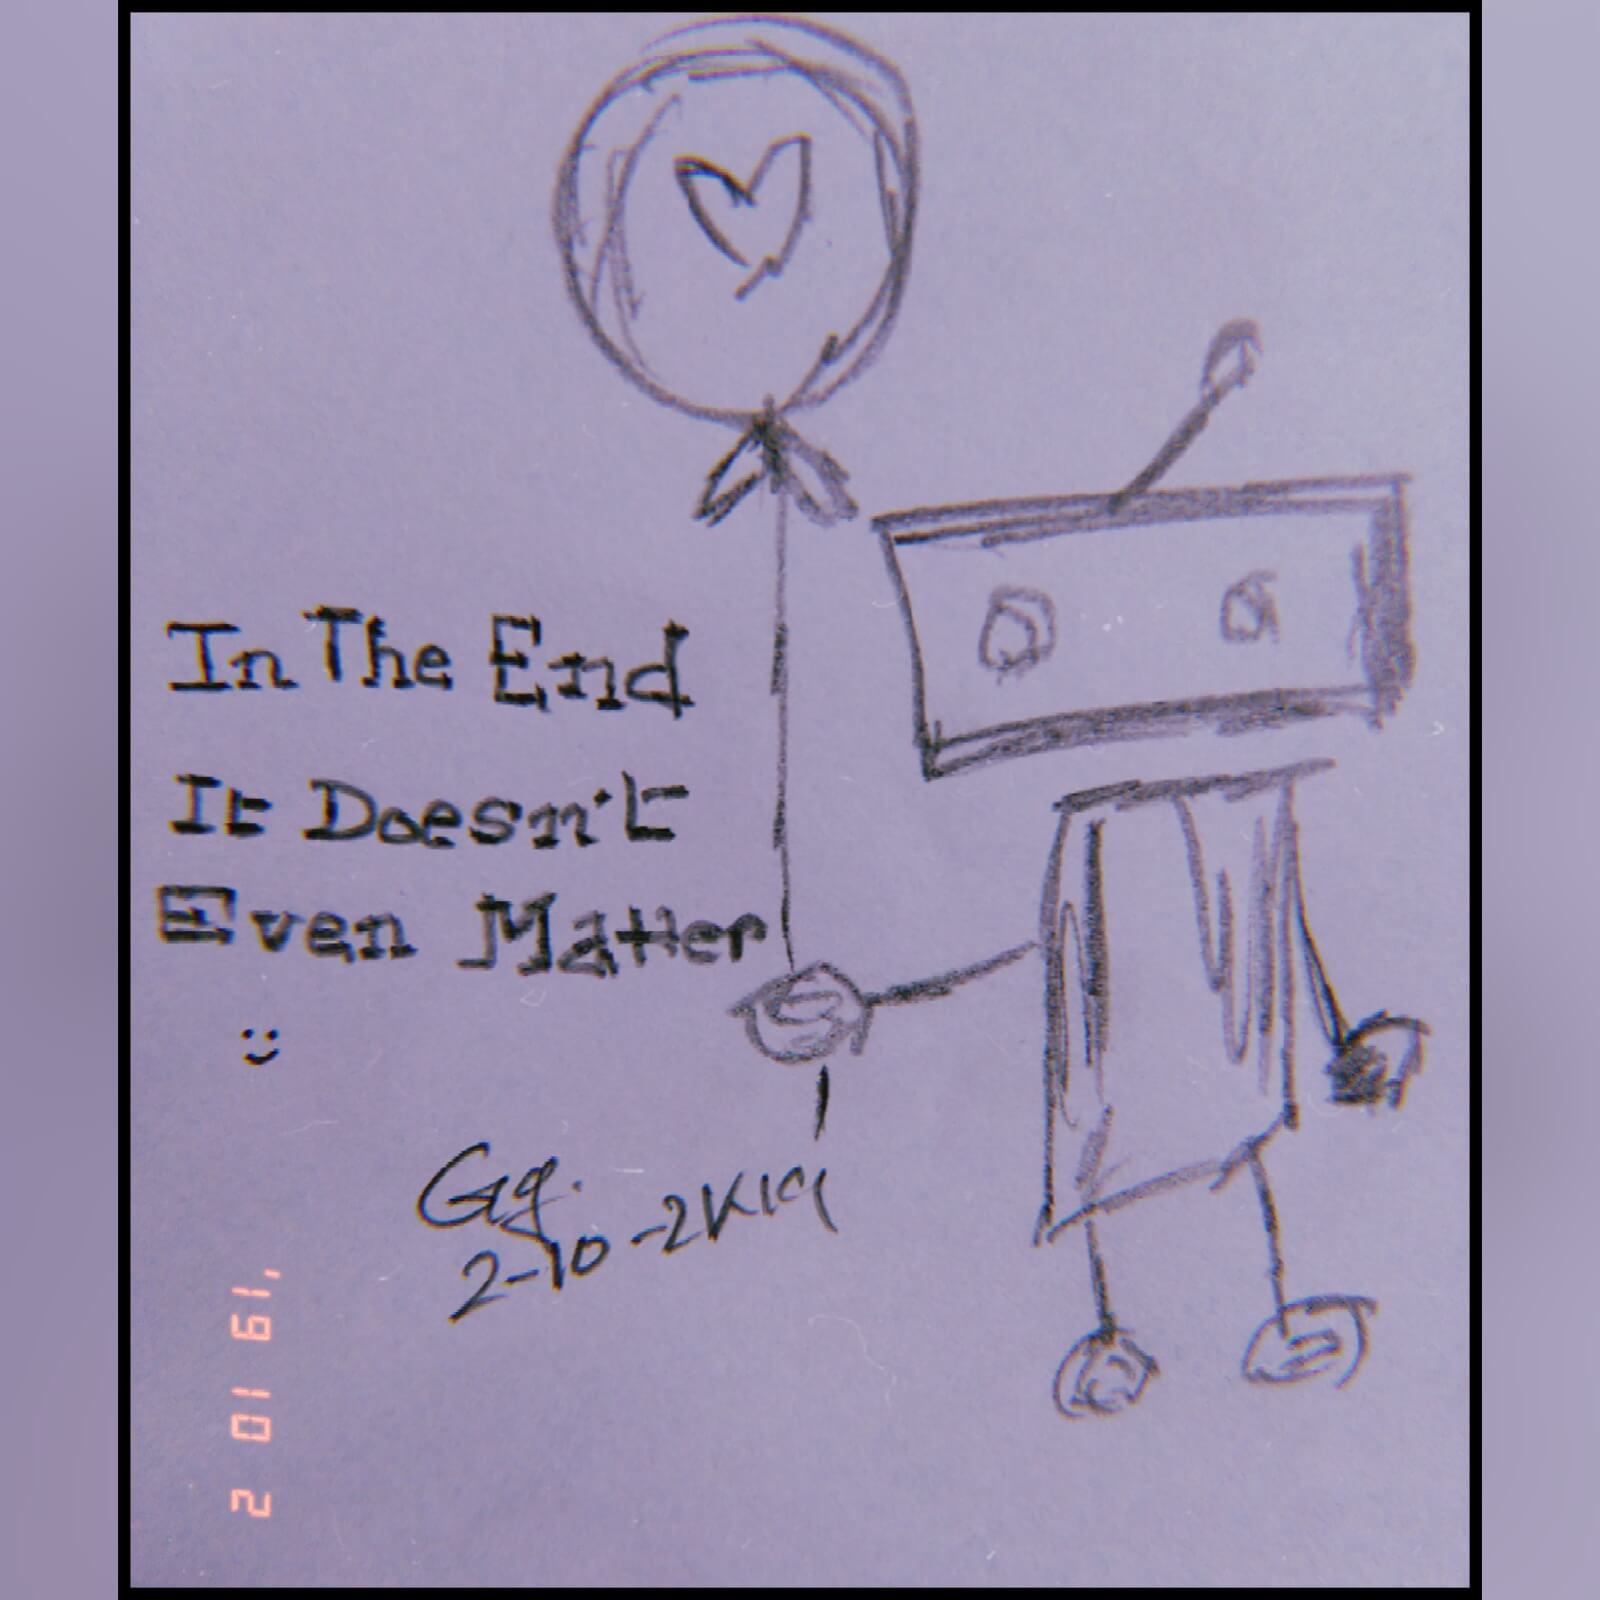 In The End
It Doesn't
Even Matter
:)
Gg.
2-10-2K19
2 10 '19